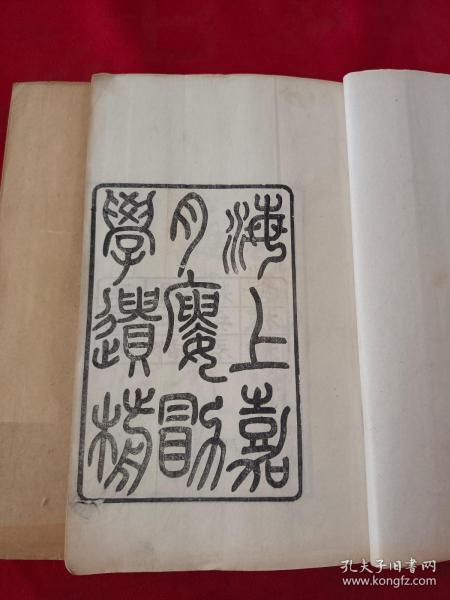 海上嘉
月廔勖
學遺
孔夫子旧书网
www.kongfz.com